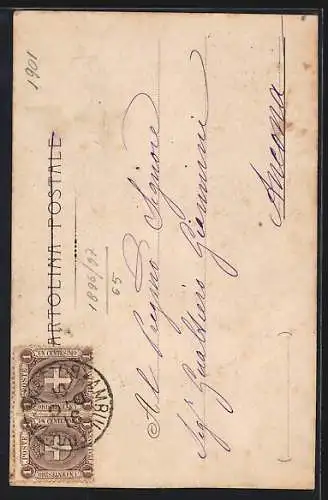 1901
CARTOLINA POSTALE
1896/97
65
Al Pregmo Signore
Sigr Gualtiero Giannini
Ancona
POSTE
UN CENTESIMO
1
POSTE
UN CENTESIMO
1